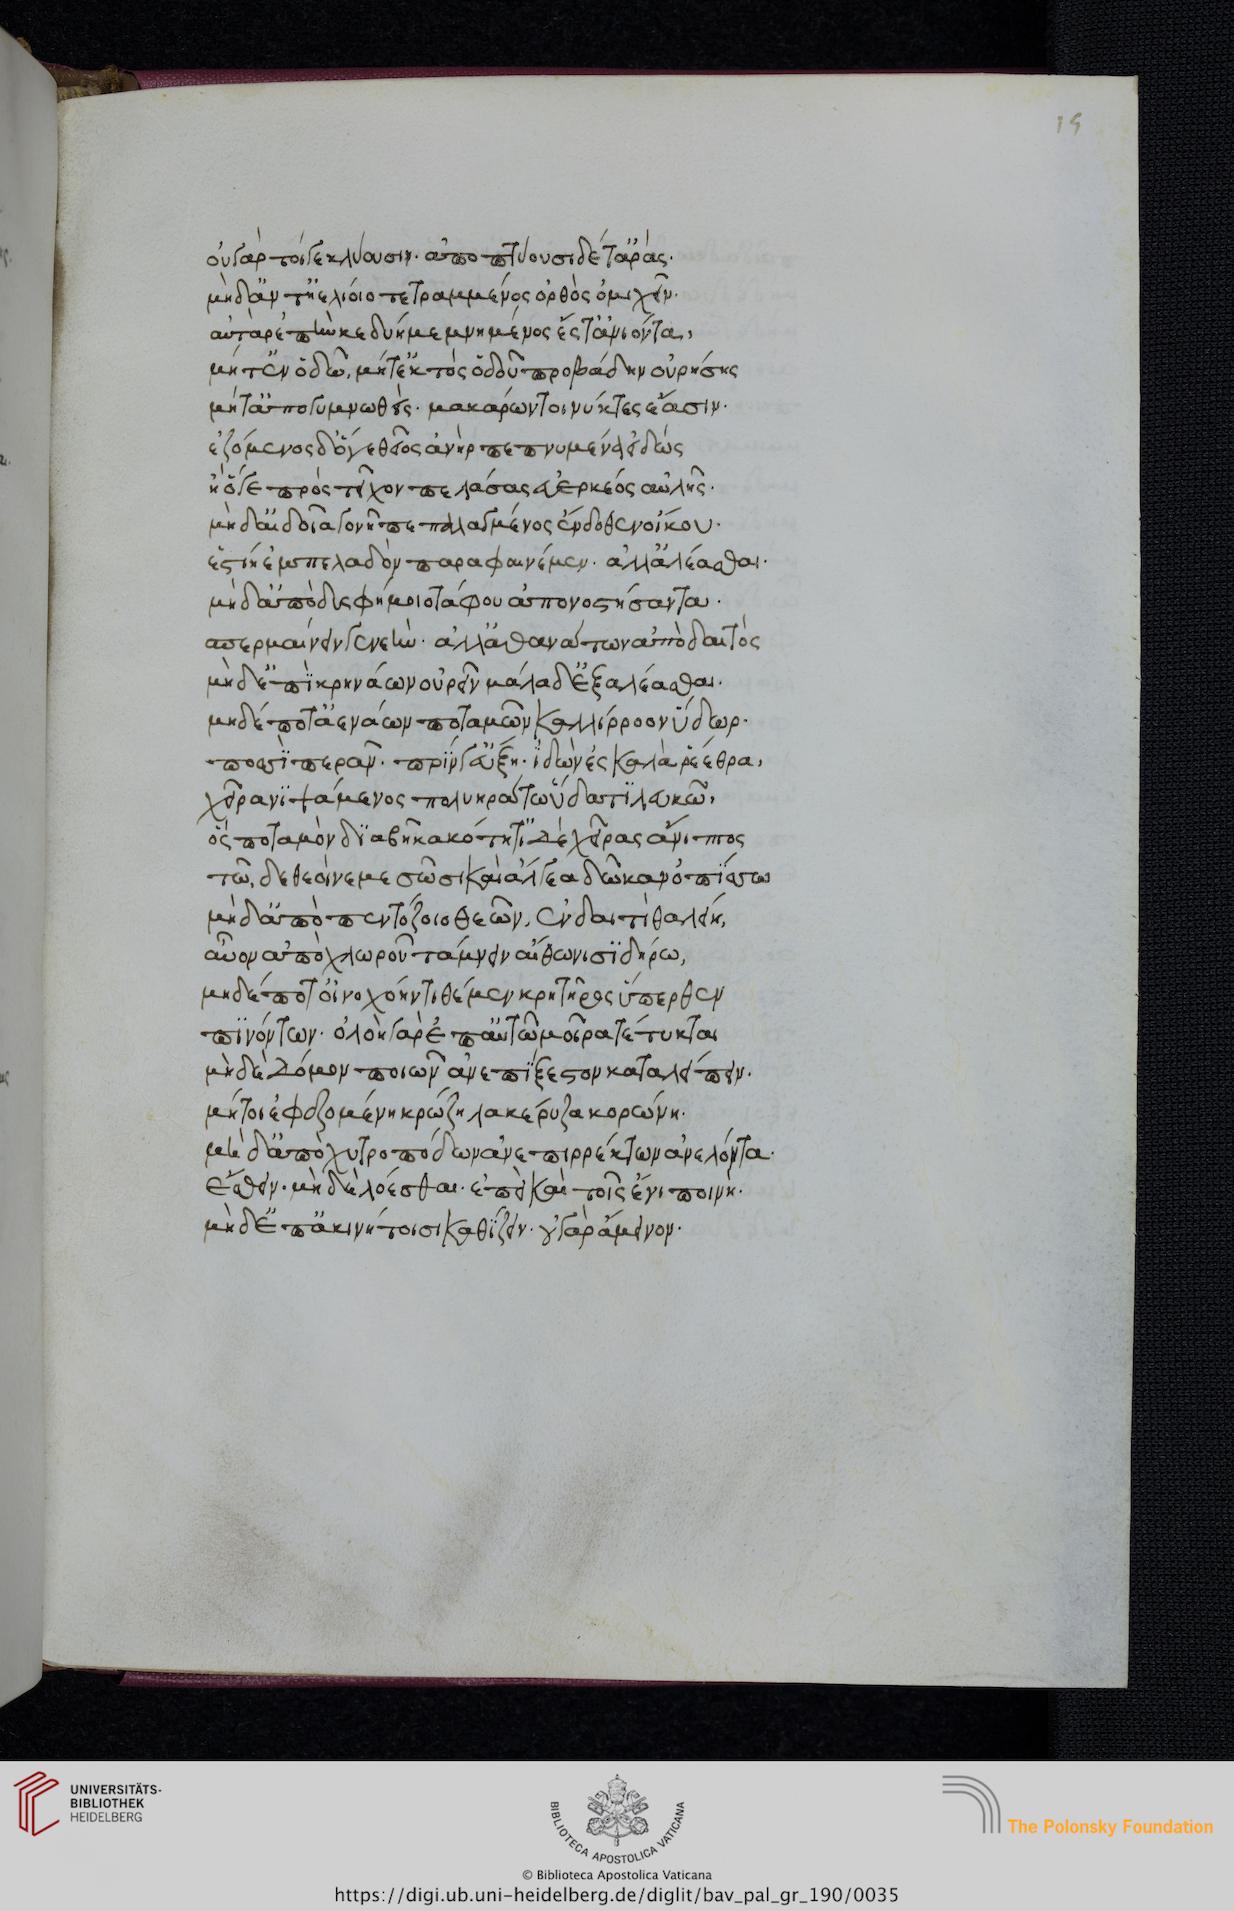 15
οὐ γὰρ τοίγε κλύουσιν· ἀποπτύουσι δέ τ' ἀράς.
μὴ δ' ἄντ' ἠελίοιο τετραμμένος ὀρθὸς ὀμιχεῖν.
αὐτὰρ ἐπὴν κε δύη μεμνημένος ἔς τ' ἀνιόντα,
μήτ' ἐν ὁδῶ, μήτ' ἐκτὸς ὁδοῦ προβάδην οὐρήσης
μήτ' ἀπογυμνωθῆς· μακάρων τοι νύκτες ἔασιν.
ἑζόμενος δ' ὅγε θεῖος ἀνὴρ πεπνυμένα εἰδὼς
ἢ ὅγε πρὸς τεῖχον πελάσας εὐερκέος αὐλῆς.
μὴ δ' αἰδοῖα γονῆ πεπαλαγμένος ἔνδοθεν οἴκου.
ἑστίη ἐμπελαδὸν παραφαινέμεν. ἀλλ' ἀλέασθαι.
μὴ δ' ἀπὸ δυσφήμοιο τάφου ἀπονοστήσαντα.
σπερμαίνειν γενεὴν· ἀλλ' ἀθανάτων ἀπὸ δαιτὸς
μὴ δ' ἐπὶ κρηνάων οὐρεῖν μάλα δ' ἐξαλέασθαι.
μηδέ ποτ' ἀενάων ποταμῶν καλλίρροον ὕδωρ.
ποσσὶ περᾶν. πρίν γ' εὔξη. ἰδὼν ἐς καλὰ ῥέεθρα,
χεῖρα νιψάμενος πολυηράτω ὕδατι λευκῶ,
ὃς ποταμὸν διαβῆ κακότητι δὲ χεῖρας ἄνιπτος
τῶ, δὲ θεοὶ νεμεσῶσι καὶ ἄλγεα δῶκαν ὀπίσσω
μὴ δ' ἀπὸ πεντόζοιο θεῶν, ἐν δαιτὶ θαλείη,
αὖον ἀπὸ χλωροῦ τάμνειν αἴθωνι σιδήρω,
μηδέ ποτ' οἰνοχόην τιθέμεν κρητῆρος ὕπερθεν
πινόντων. ὀλοὴ γὰρ ἐπ' αὐτῶ μοῖρα τέτυκται
μὴ δὲ δόμον ποιῶν ἀνεπίξεστον καταλείπειν.
μήτοι ἐφεζομένη κρώζη λακέρυζα κορώνη.
μὴ δ' ἀπὸ χυτροπόδων ἀνεπιρρέκτων ἀνελόντα.
ἔσθειν. μὴ δὲ λόεσθαι. ἐπεὶ καὶ τοῖς ἔνι ποινή.
μὴ δ' ἐπ' ἀκινήτοισι καθίζειν. οὐ γὰρ ἄμεινον.
UNIVERSITÄTS-
BIBLIOTHEK
HEIDELBERG
BIBLIOTECA APOSTOLICA VATICANA
The Polonsky Foundation
© Biblioteca Apostolica Vaticana
https://digi.ub.uni-heidelberg.de/diglit/bav_pal_gr_190/0035